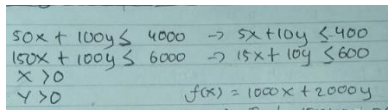 50x + 100y ≤ 4000 → 5x + 10y ≤ 400
150x + 100y ≤ 6000 → 15x + 10y ≤ 600
x > 0
y > 0 f(x) = 1000x + 2000y